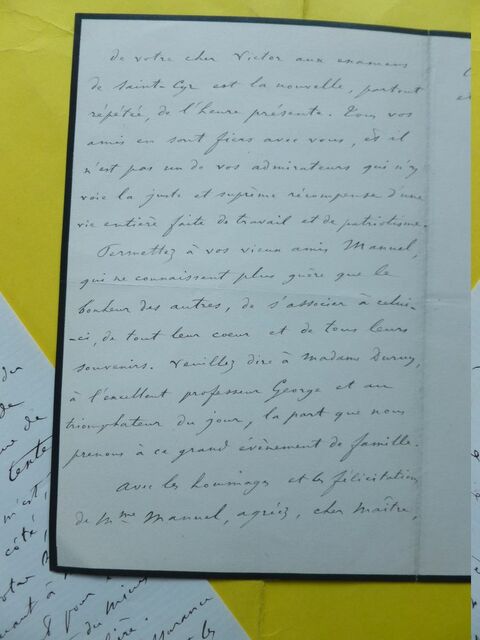 de votre cher Victor aux examens
de Saint-Cyr est la nouvelle, partout
répétée, de l'heure présente. Tous vos
amis en sont fiers avec vous, et il
n'est pas un de vos admirateurs qui n'y
voie la juste et suprême récompense d'une
vie entière faite de travail et de patriotisme.
Permettez à vos vieux amis Manuel,
qui ne connaissent plus guère que le
bonheur des autres, de s'associer à celui-
-ci, de tout leur coeur et de tous leurs
souvenirs. Veuillez dire à Madame Duruy,
à l'excellent professeur George et au
triomphateur du jour, la part que nous
prenons à ce grand évènement de famille.
Avec les hommages et les félicitations
de Mme Manuel, agréez, cher Maître,
du
de
de
tente
m'est,
côté,
votre
quant à
pour
du mieux